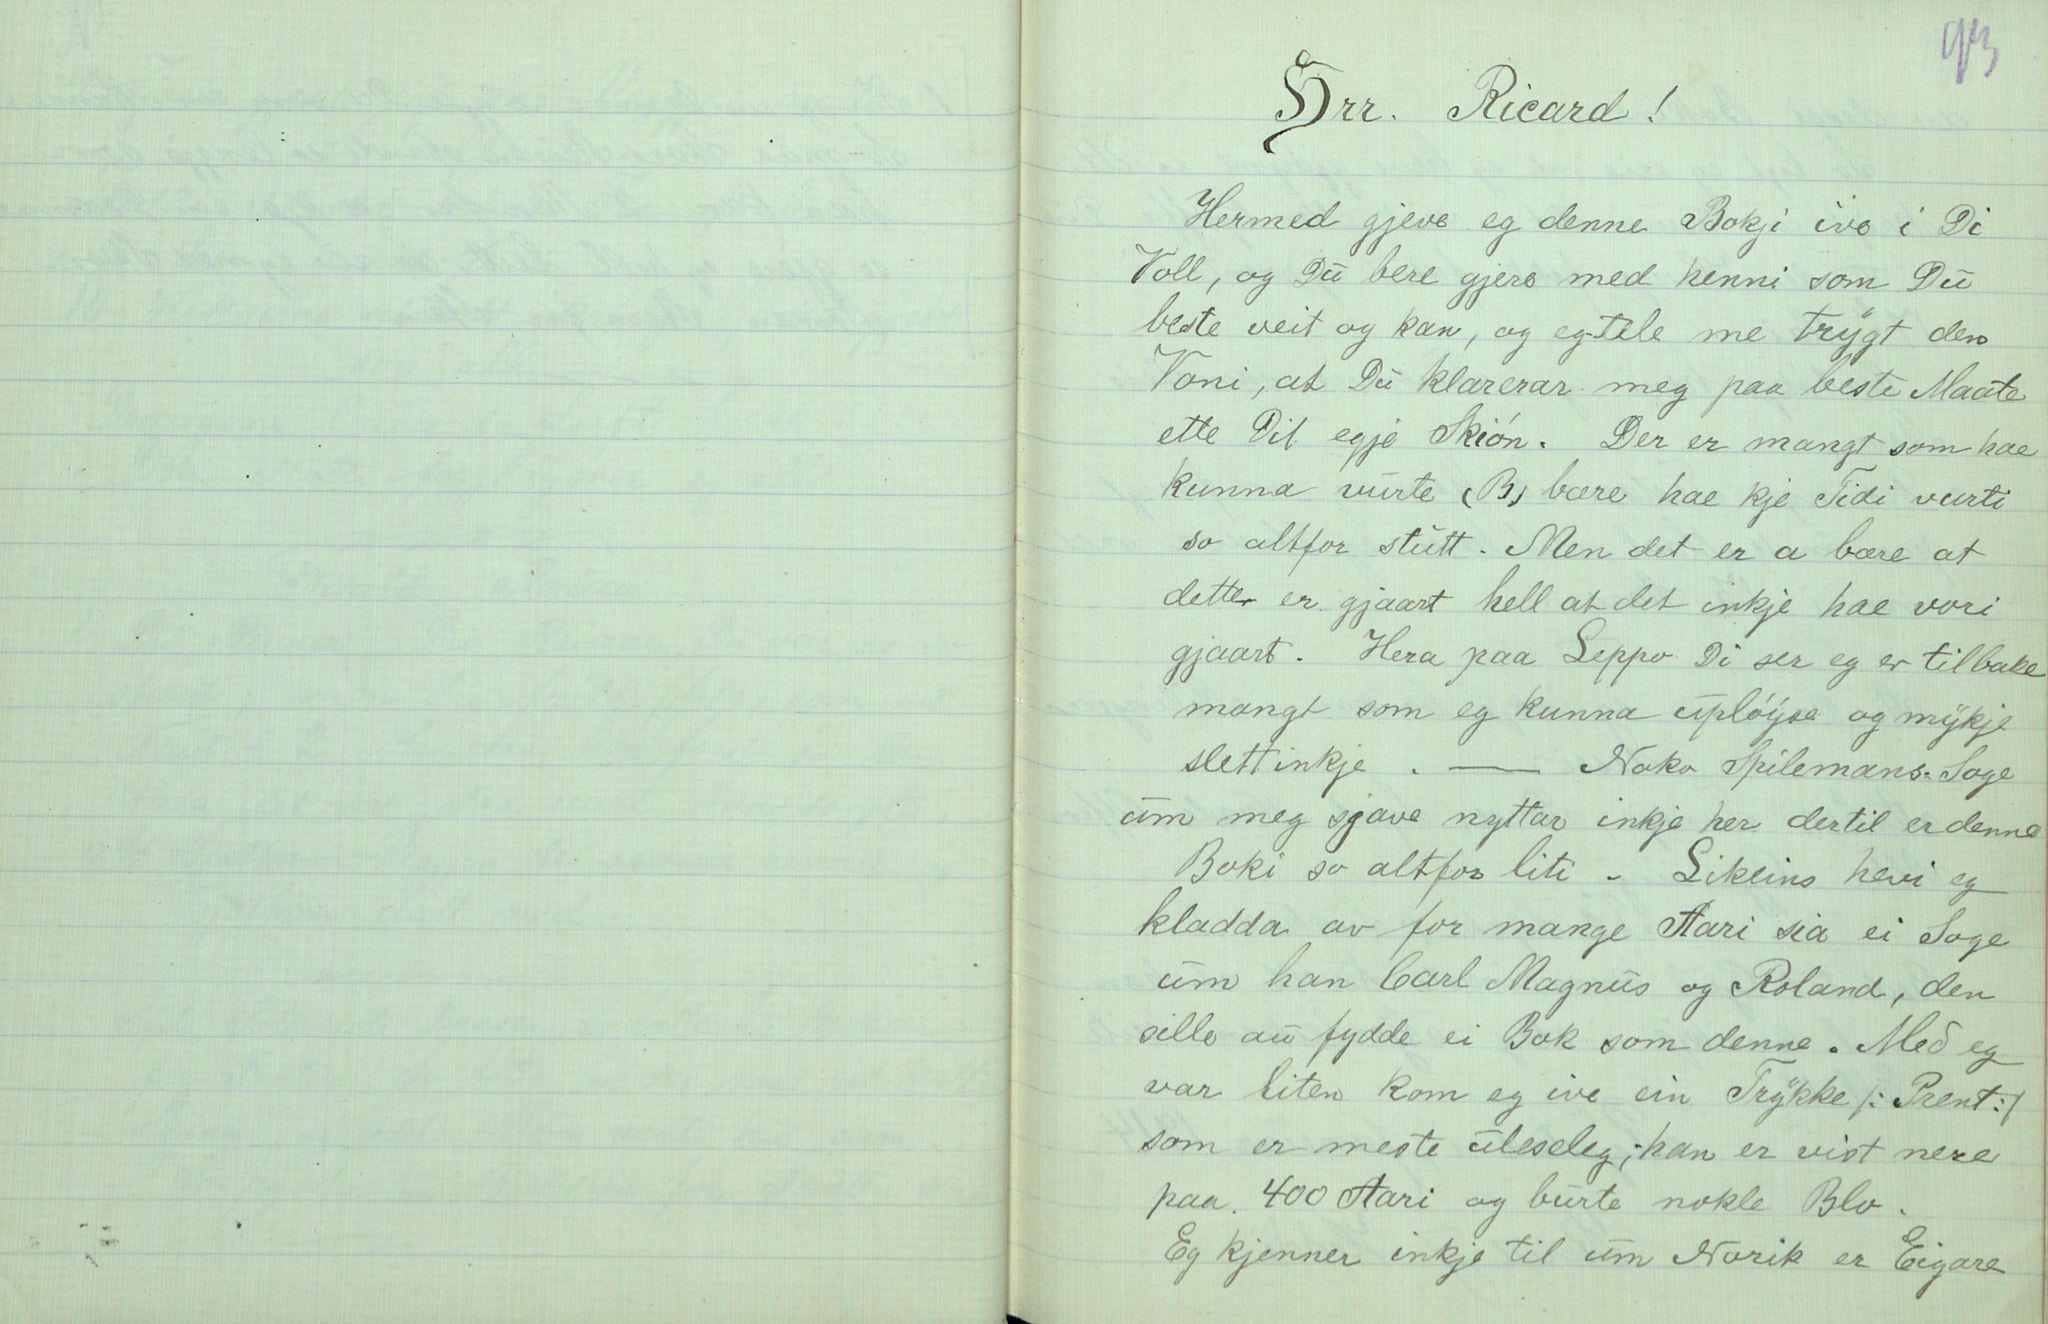 93
Hrr. Ricard!
Hermed gjeve eg denne Bokji ive i Di
Voll, og Dū bere gjere med henni som Dū
beste veit og kan, og eg tele me trÿgt den
Voni, at Dū klarerar meg paa beste Maate
ette Dit egje Skión. Der er mangt som hae
kunna vūrte (B) bære hae kje Tidi vurti
so altfor stūtt. Men det er a bære at
dette er gjaart hell at det inkje hae vori
gjaart. Hera paa Leppo Di ser eg er tilbake
mangt som eg kunna ūplóÿse og mÿkje
slett inkje. — Noko Spilemans-Soge
ūm meg sjave nyttar inkje her dertil er denne
Boki so altfor liti. Likeins hevi eg
kladda av for mange Aari sia ei Soge
ūm han Carl Magnūs og Roland, den
sille aū fydde ei Bok som denne. Med eg
var liten kom eg ive ein Trÿkke /: Prent :/
som er meste ūleseleg; han er vist nere
paa 400 Aari og būrte nokle Blo.
Eg kjenner inkje til ūm Norik er Eigare